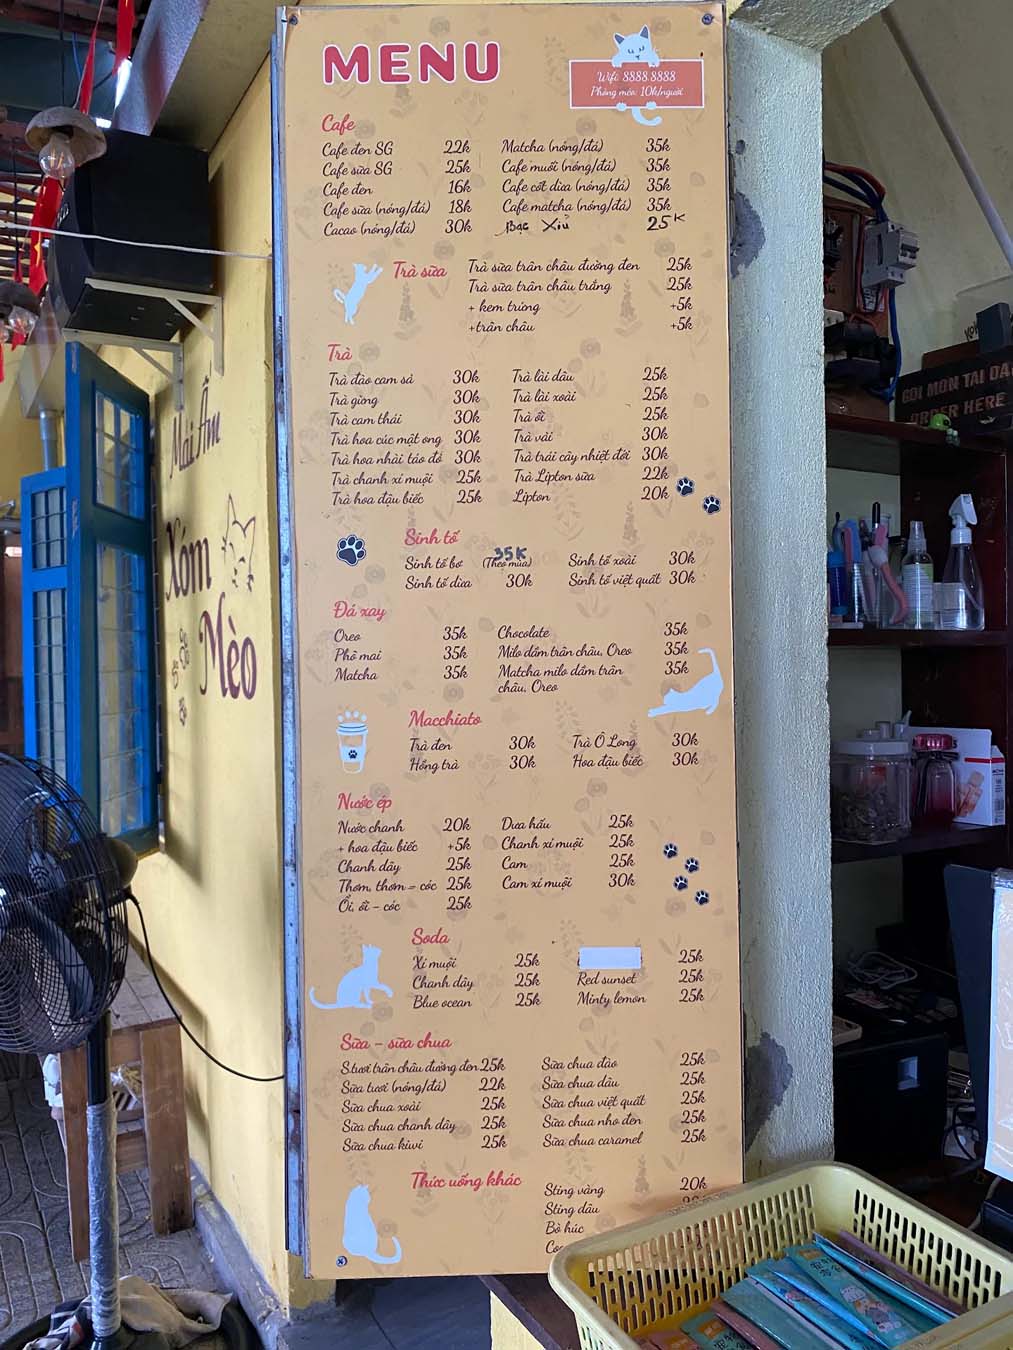 MENU
Wifi: 8888 8888
Phòng mèo: 10k/người
Cafe
Cafe đen SG 22k
Cafe sữa SG 25k
Cafe đen 16k
Cafe sữa (nóng/đá) 18k
Cacao (nóng/đá) 30k
Matcha (nóng/đá) 35k
Cafe muối (nóng/đá) 35k
Cafe cốt dừa (nóng/đá) 35k
Cafe matcha (nóng/đá) 35k
Bạc Xỉu 25K
Trà sữa
Trà sữa trân châu đường đen 25k
Trà sữa trân châu trắng 25k
+ kem trứng +5k
+trân châu +5k
Trà
Trà đào cam sả 30k
Trà gừng 30k
Trà cam thái 30k
Trà hoa cúc mật ong 30k
Trà hoa nhài táo đỏ 30k
Trà chanh xí muội 25k
Trà hoa đậu biếc 25k
Trà lài dâu 25k
Trà lài xoài 25k
Trà ổi 25k
Trà vải 30k
Trà trái cây nhiệt đới 30k
Trà Lipton sữa 22k
Lipton 20k
Sinh tố
Sinh tố bơ (Theo mùa) 35K
Sinh tố dừa 30k
Sinh tố xoài 30k
Sinh tố việt quất 30k
Đá xay
Oreo 35k
Phô mai 35k
Matcha 35k
Chocolate 35k
Milo dầm trân châu, Oreo 35k
Matcha milo dầm trân 35k
châu, Oreo
Macchiato
Trà đen 30k
Hồng trà 30k
Trà Ô Long 30k
Hoa đậu biếc 30k
Nước ép
Nước chanh 20k
+ hoa đậu biếc +5k
Chanh dây 25k
Thơm, thơm - cóc 25k
Ổi, ổi - cóc 25k
Dưa hấu 25k
Chanh xí muội 25k
Cam 25k
Cam xí muội 30k
Soda
Xí muội 25k
Chanh dây 25k
Blue ocean 25k
25k
Red sunset 25k
Minty lemon 25k
Sữa - sữa chua
S.tươi trân châu đường đen 25k
Sữa tươi (nóng/đá) 22k
Sữa chua xoài 25k
Sữa chua chanh dây 25k
Sữa chua kiwi 25k
Sữa chua đào 25k
Sữa chua dâu 25k
Sữa chua việt quất 25k
Sữa chua nho đen 25k
Sữa chua caramel 25k
Thức uống khác
Sting vàng 20k
Sting dâu
Bò húc
Mái Ấm
Xóm
Mèo
GỌI MÓN TẠI
ORDER HERE